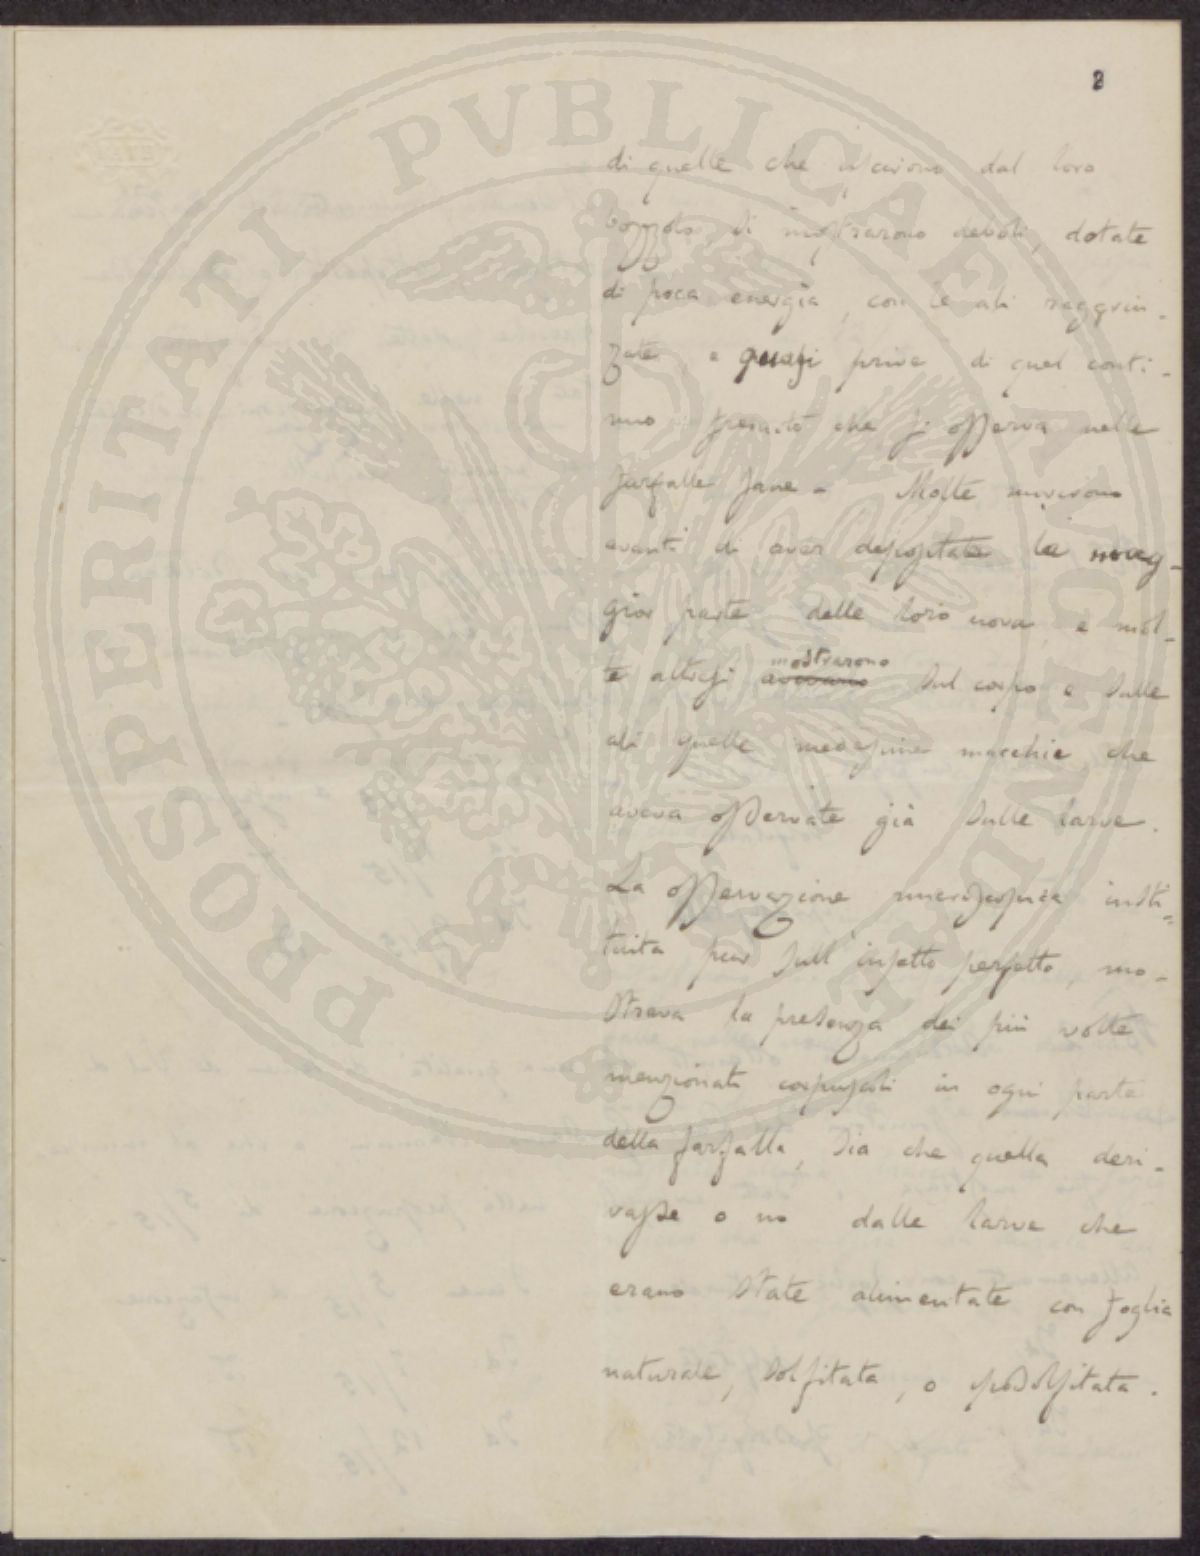 PROSPERITATI PVBLICAE AVGENDAE
2
di quelle che uscirono dal loro
bozzolo, si mostrarono deboli, dotate
di poca energia, con le ali raggrin-
zate e quasi prive di quel conti-
nuo fremito che si osserva nelle
farfalle sane - Molte morirono
avanti di aver depositate la mag-
gior parte delle loro uova e mol-
te altresi avevano mostrarono sul corpo e sulle
ali quelle medesime macchie che
aveva osservate già sulle larve.
La osservazione microscopica insti-
tuita pur sull'insetto perfetto, mo-
strava la presenza dei più volte
menzionati corpuscoli in ogni parte
della farfalla, sia che quella deri-
vasse o no dalle larve che
erano state alimentate con foglia
naturale, solfitata, o iposolfitata.